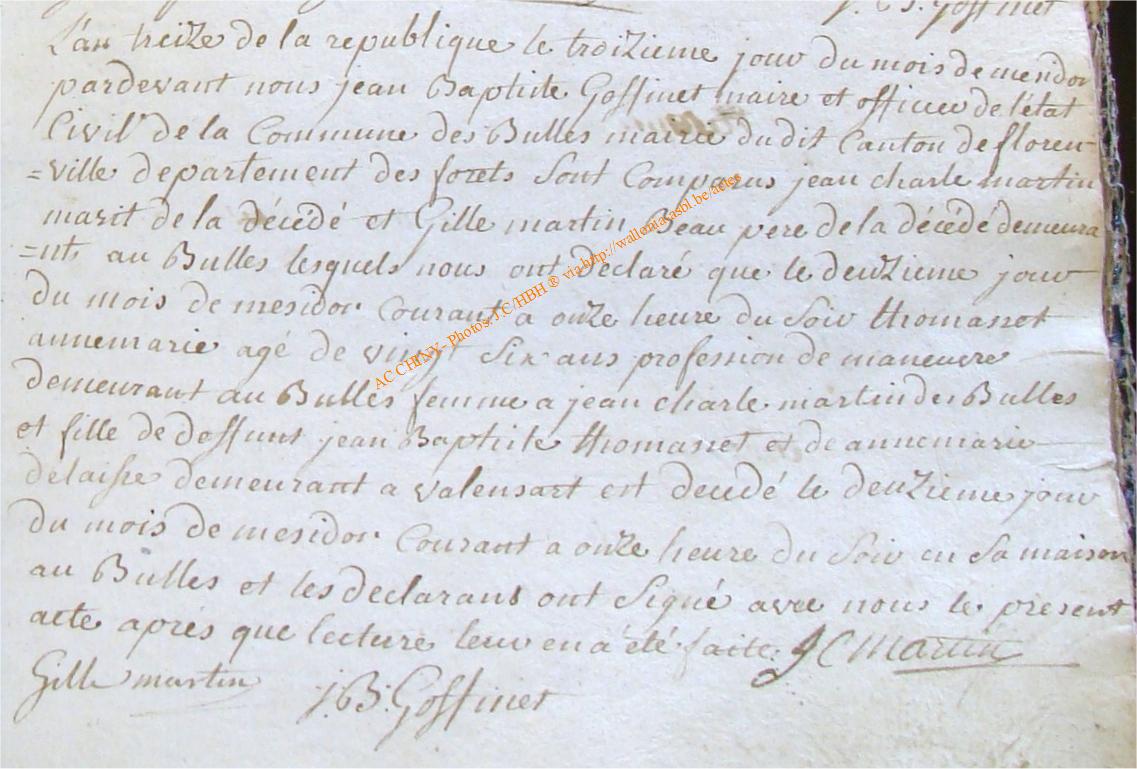 J. B. Goffinet
L'an treize de la republique le troizieme jour du mois de mesidor
pardevant nous jean Baptiste Goffinet maire et officier de l'état
Civil de la Commune des Bulles mairie du dit Canton de floren-
=ville departement des forets Sont Comparus jean charle martin
marit de la décédé et Gille martin Beau pere de la décédé demeura
=nts au Bulles lesquels nous ont declaré que le deuzieme jour
du mois de mesidor Courant a onze heure du Soir thomasset
annemarie agé de vingt Six ans profession de maneuvre
demeurant au Bulles femme a jean charle martin des Bulles
et fille de deffunt jean Baptiste thomasset et de annemarie
delaisse demeurant a valensart est decedé le deuzieme jour
du mois de mesidor Courant a onze heure du Soir en Sa maison
au Bulles et les declarans ont Signé avec nous le present
acte après que lecture leur en a été faite. J C Martin
Gille martin
J. B. Goffinet
AC CHINY- Photos: J.C/HBH ® via http://wallonia.asbl.be/actes